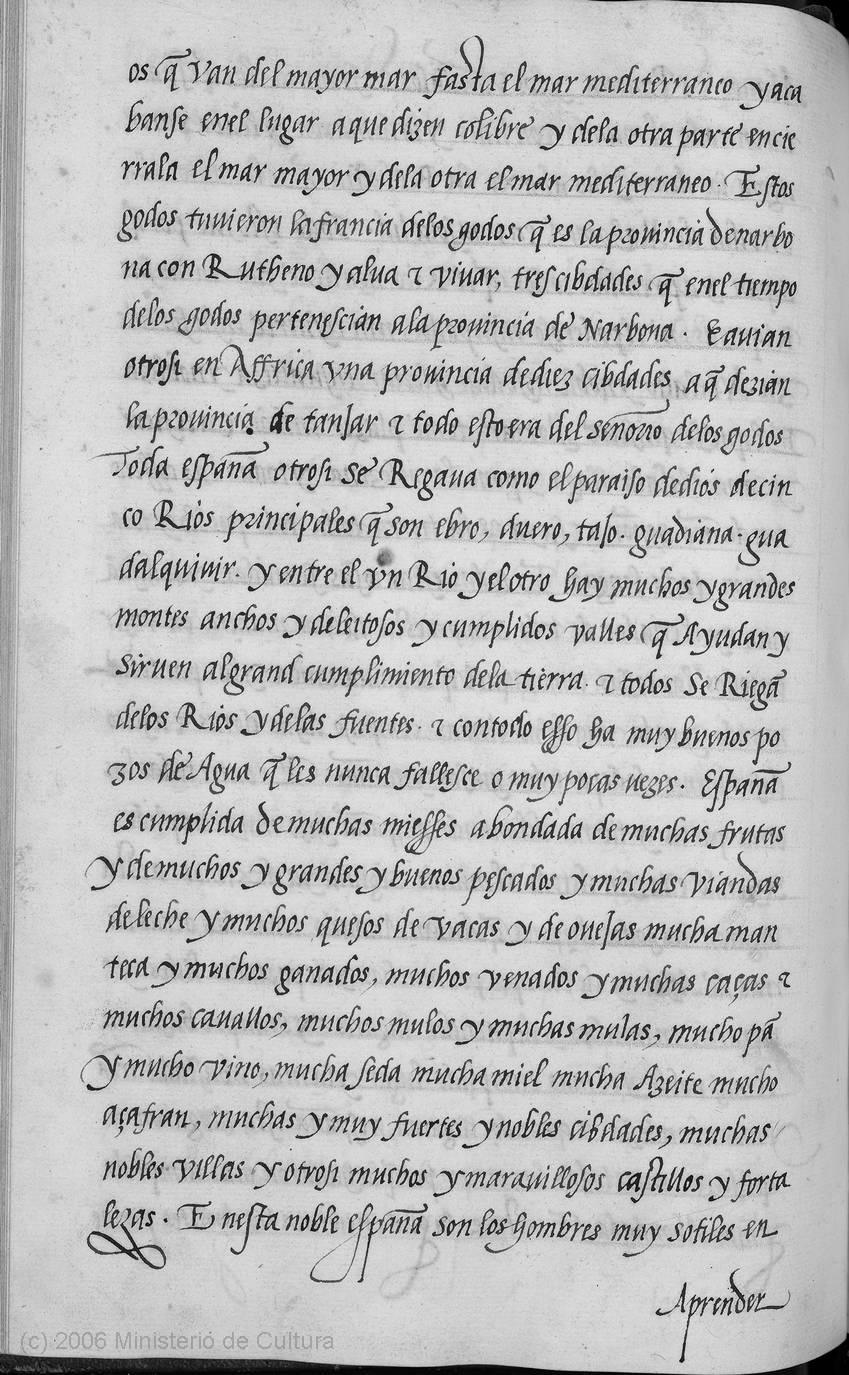 os q̄ van del mayor mar fasta el mar mediterraneo y aca
banse enel lugar a que dizen colibre y dela otra parte encie
rrala el mar mayor y dela otra el mar mediterraneo. Estos
godos tuvieron la francia delos godos q̄ es la provincia denarbo
na con Rutheno y alva & vivar, tres cibdades q̄ enel tiempo
delos godos pertenesciàn ala provincia de Narbona. E avian
otrosi en Affrica vna provincia dediez cibdades a q̄ deziàn
la provincia de tanjar & todo esto era del señorio delos godos
Toda españa otrosi se Regava como el paraiso dedios decin
co Rios principales q̄ son ebro, duero, tajo. guadiana. gua
dalquivir. y entre el vn Rio y el otro hay muchos y grandes
montes anchos y deleitosos y cumplidos valles q̄ Ayudan y
sirven algrand cumplimiento dela tierra. & todos se Riegā
delos Rios y delas fuentes. & contodo esso ha muy buenos po
zos de Agua q̄ les nunca fallesce o muy pocas vezes. España
es cumplida de muchas miesses abondada de muchas frutas
y de muchos y grandes y buenos pescados y muchas viandas
de leche y muchos quesos de vacas y de ovejas mucha man
teca y muchos ganados, muchos venados y muchas caças &
muchos cavallos, muchos mulos y muchas mulas, mucho pā
y mucho vino, mucha seda mucha miel mucha Azeite mucho
açafran, muchas y muy fuertes y nobles cibdades, muchas
nobles villas y otrosi muchos y maravillosos castillos y forta
lezas. Enesta noble españa son los hombres muy sotiles en
Aprender
(c) 2006 Ministerió de Cultura